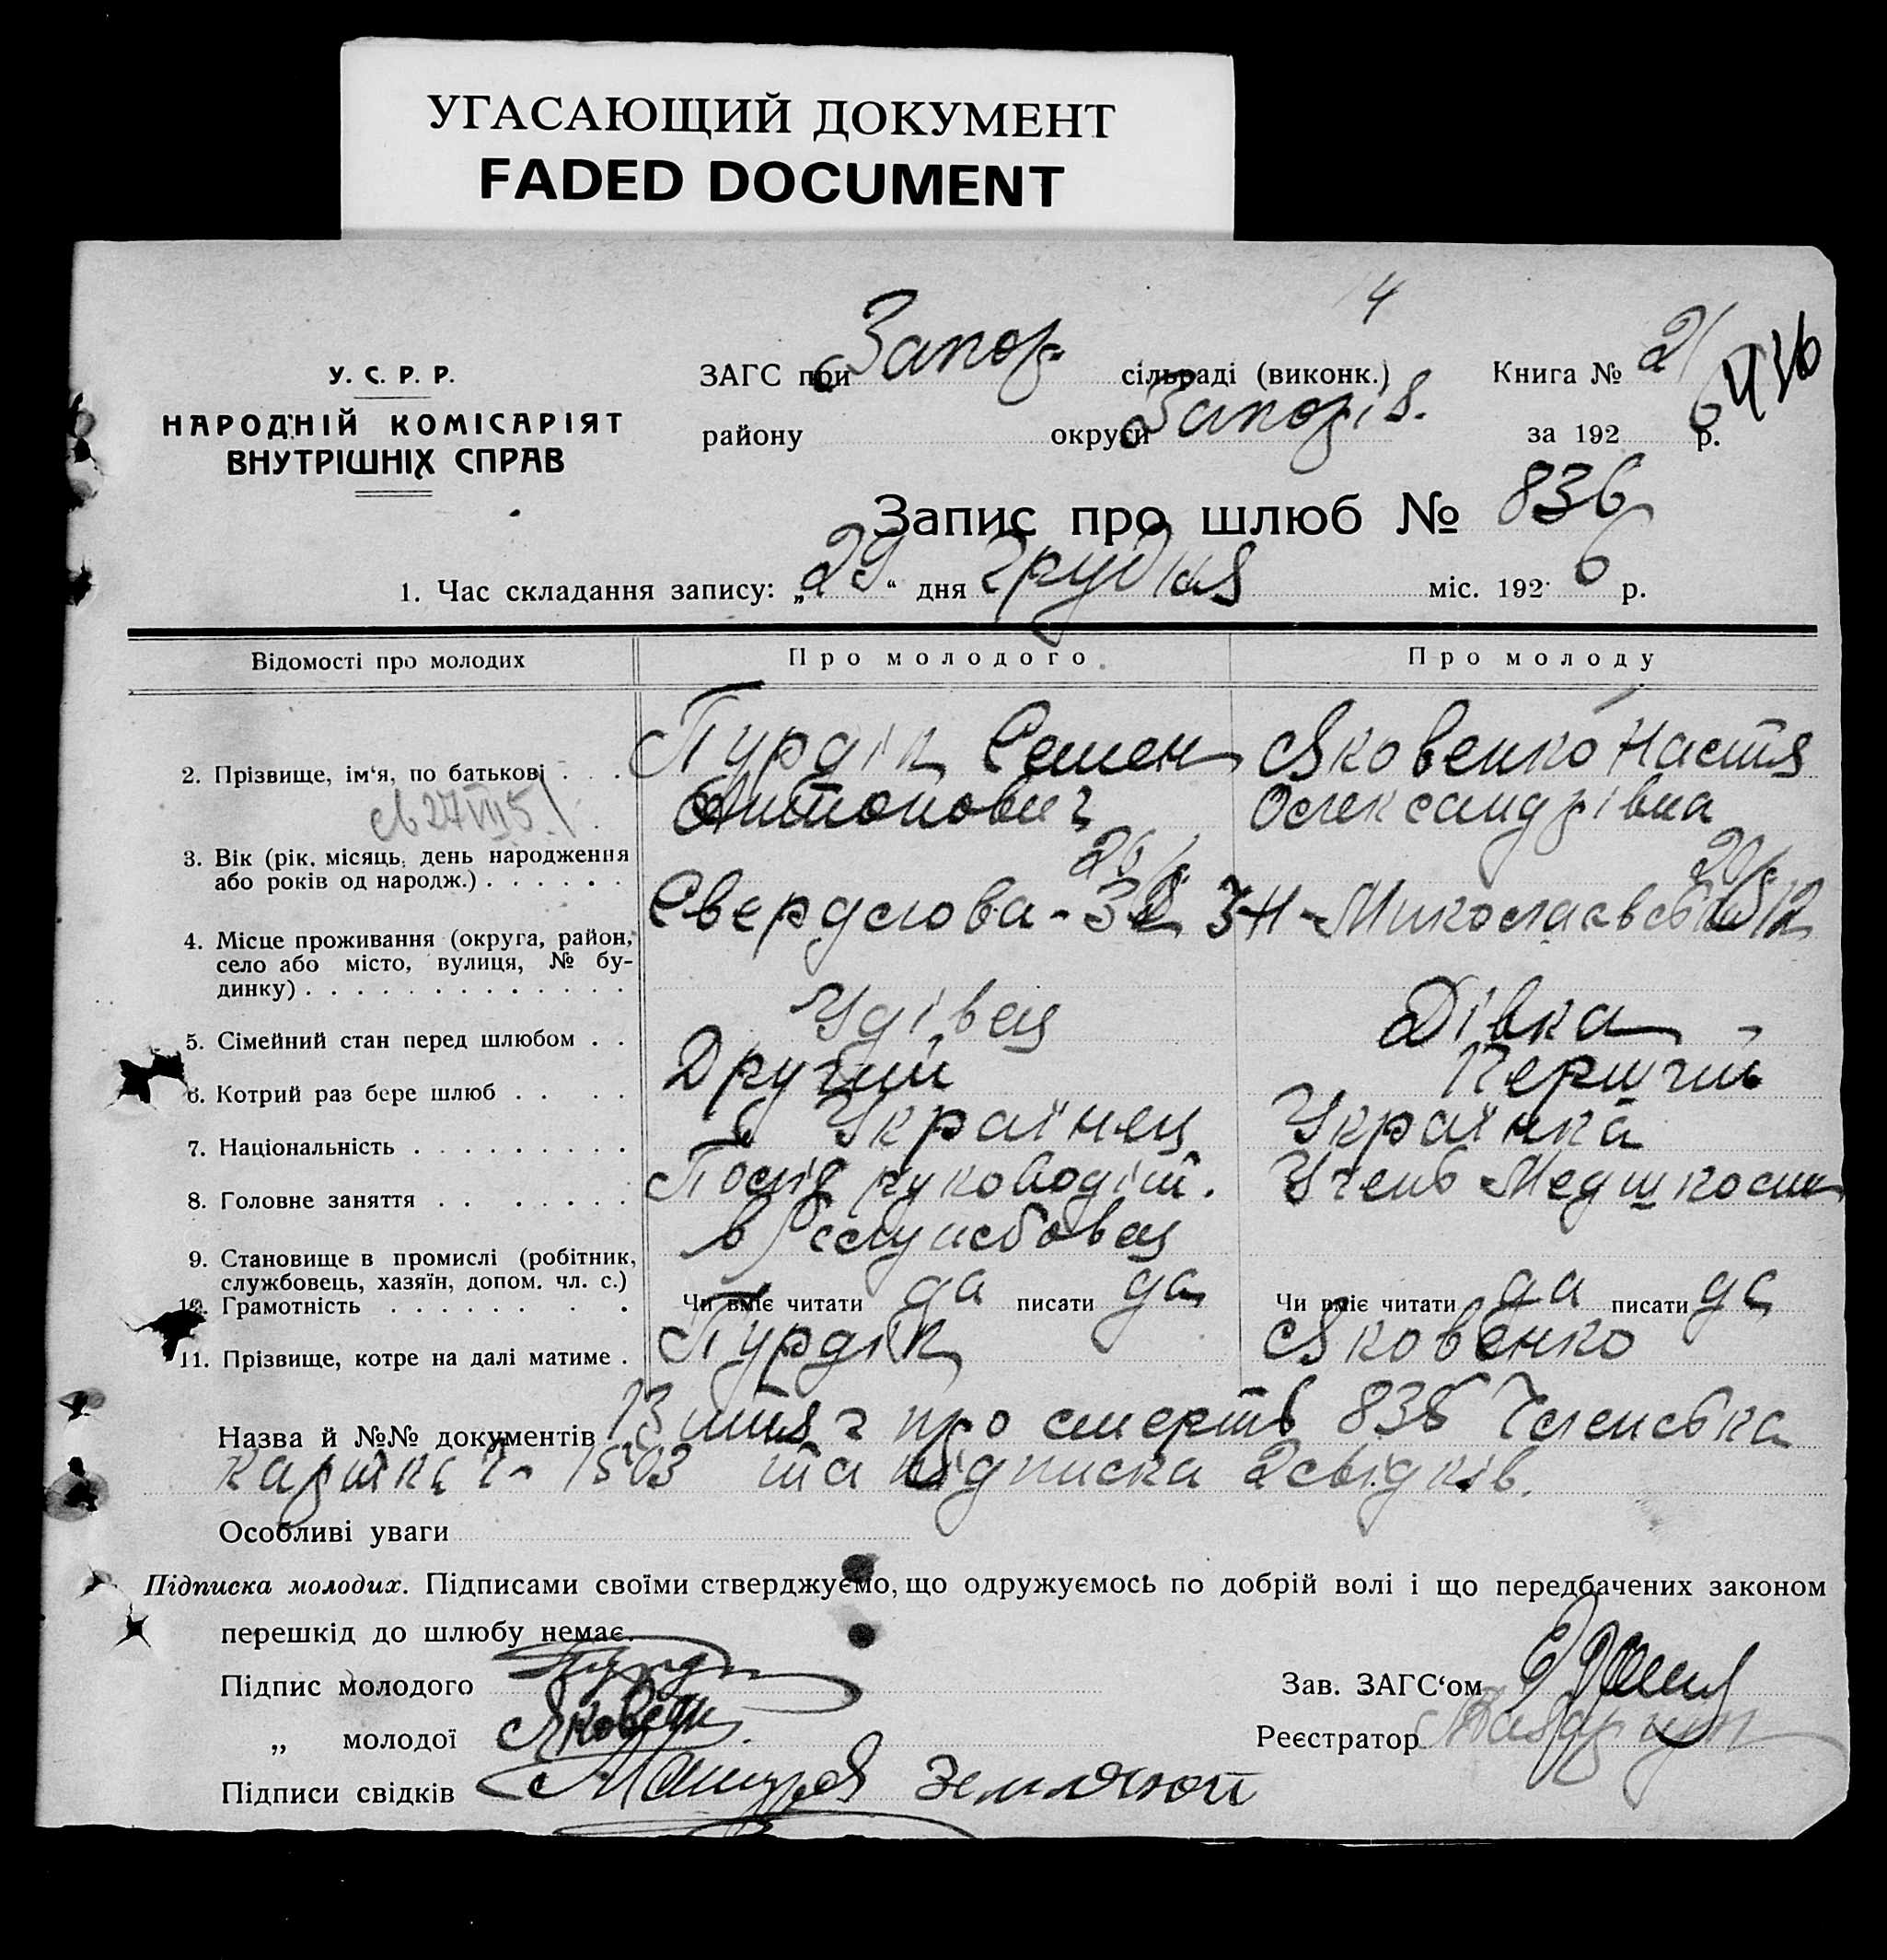 УГАСАЮЩИЙ ДОКУМЕНТ
FADED DOCUMENT
4
У. С. Р. Р.
НАРОДНІЙ КОМІСАРІЯТ
ВНУТРІШНІХ СПРАВ
ЗАГС при Запор. сільраді (виконк.) Книга № 21
району округи Запоріз. за 192 6 р.
Запис про шлюб № 836
1. Час складання запису: „29“ дня Грудня міс. 192 6 р.
Відомості про молодих Про молодого. Про молоду
2. Прізвище, ім‘я, по батькові Пурдік Семен Яковенко Настя
Антонович Олександрівна
3. Вік (рік, місяць, день народження
або років од народж.) 26 20
4. Місце проживання (округа, район,
село або місто, вулиця, № бу-
динку) Свердлова-
5. Сімейний стан перед шлюбом Удівец Дівка
6. Котрий раз бере шлюб Другий Перший
7. Національність Українец Українка
8. Головне заняття руководіт. Учень Медшколи
9. Становище в промислі (робітник,
службовець, хазяїн, допом. чл. с.)
10. Грамотність Чи вміє читати да писати да Чи вміє читати да писати да
11. Прізвище, котре на далі матиме Пурдік Яковенко
Назва й №№ документів про смерть 838 Членська
Картка 1503 та підписка 2 свідків.
Особливі уваги
Підписка молодих. Підписами своїми стверджуємо, що одружуємось по добрій волі і що передбачених законом
перешкід до шлюбу немає.
Підпис молодого Зав. ЗАГС‘ом
„ молодої Яковенк Реєстратор
Підписи свідків Землючой